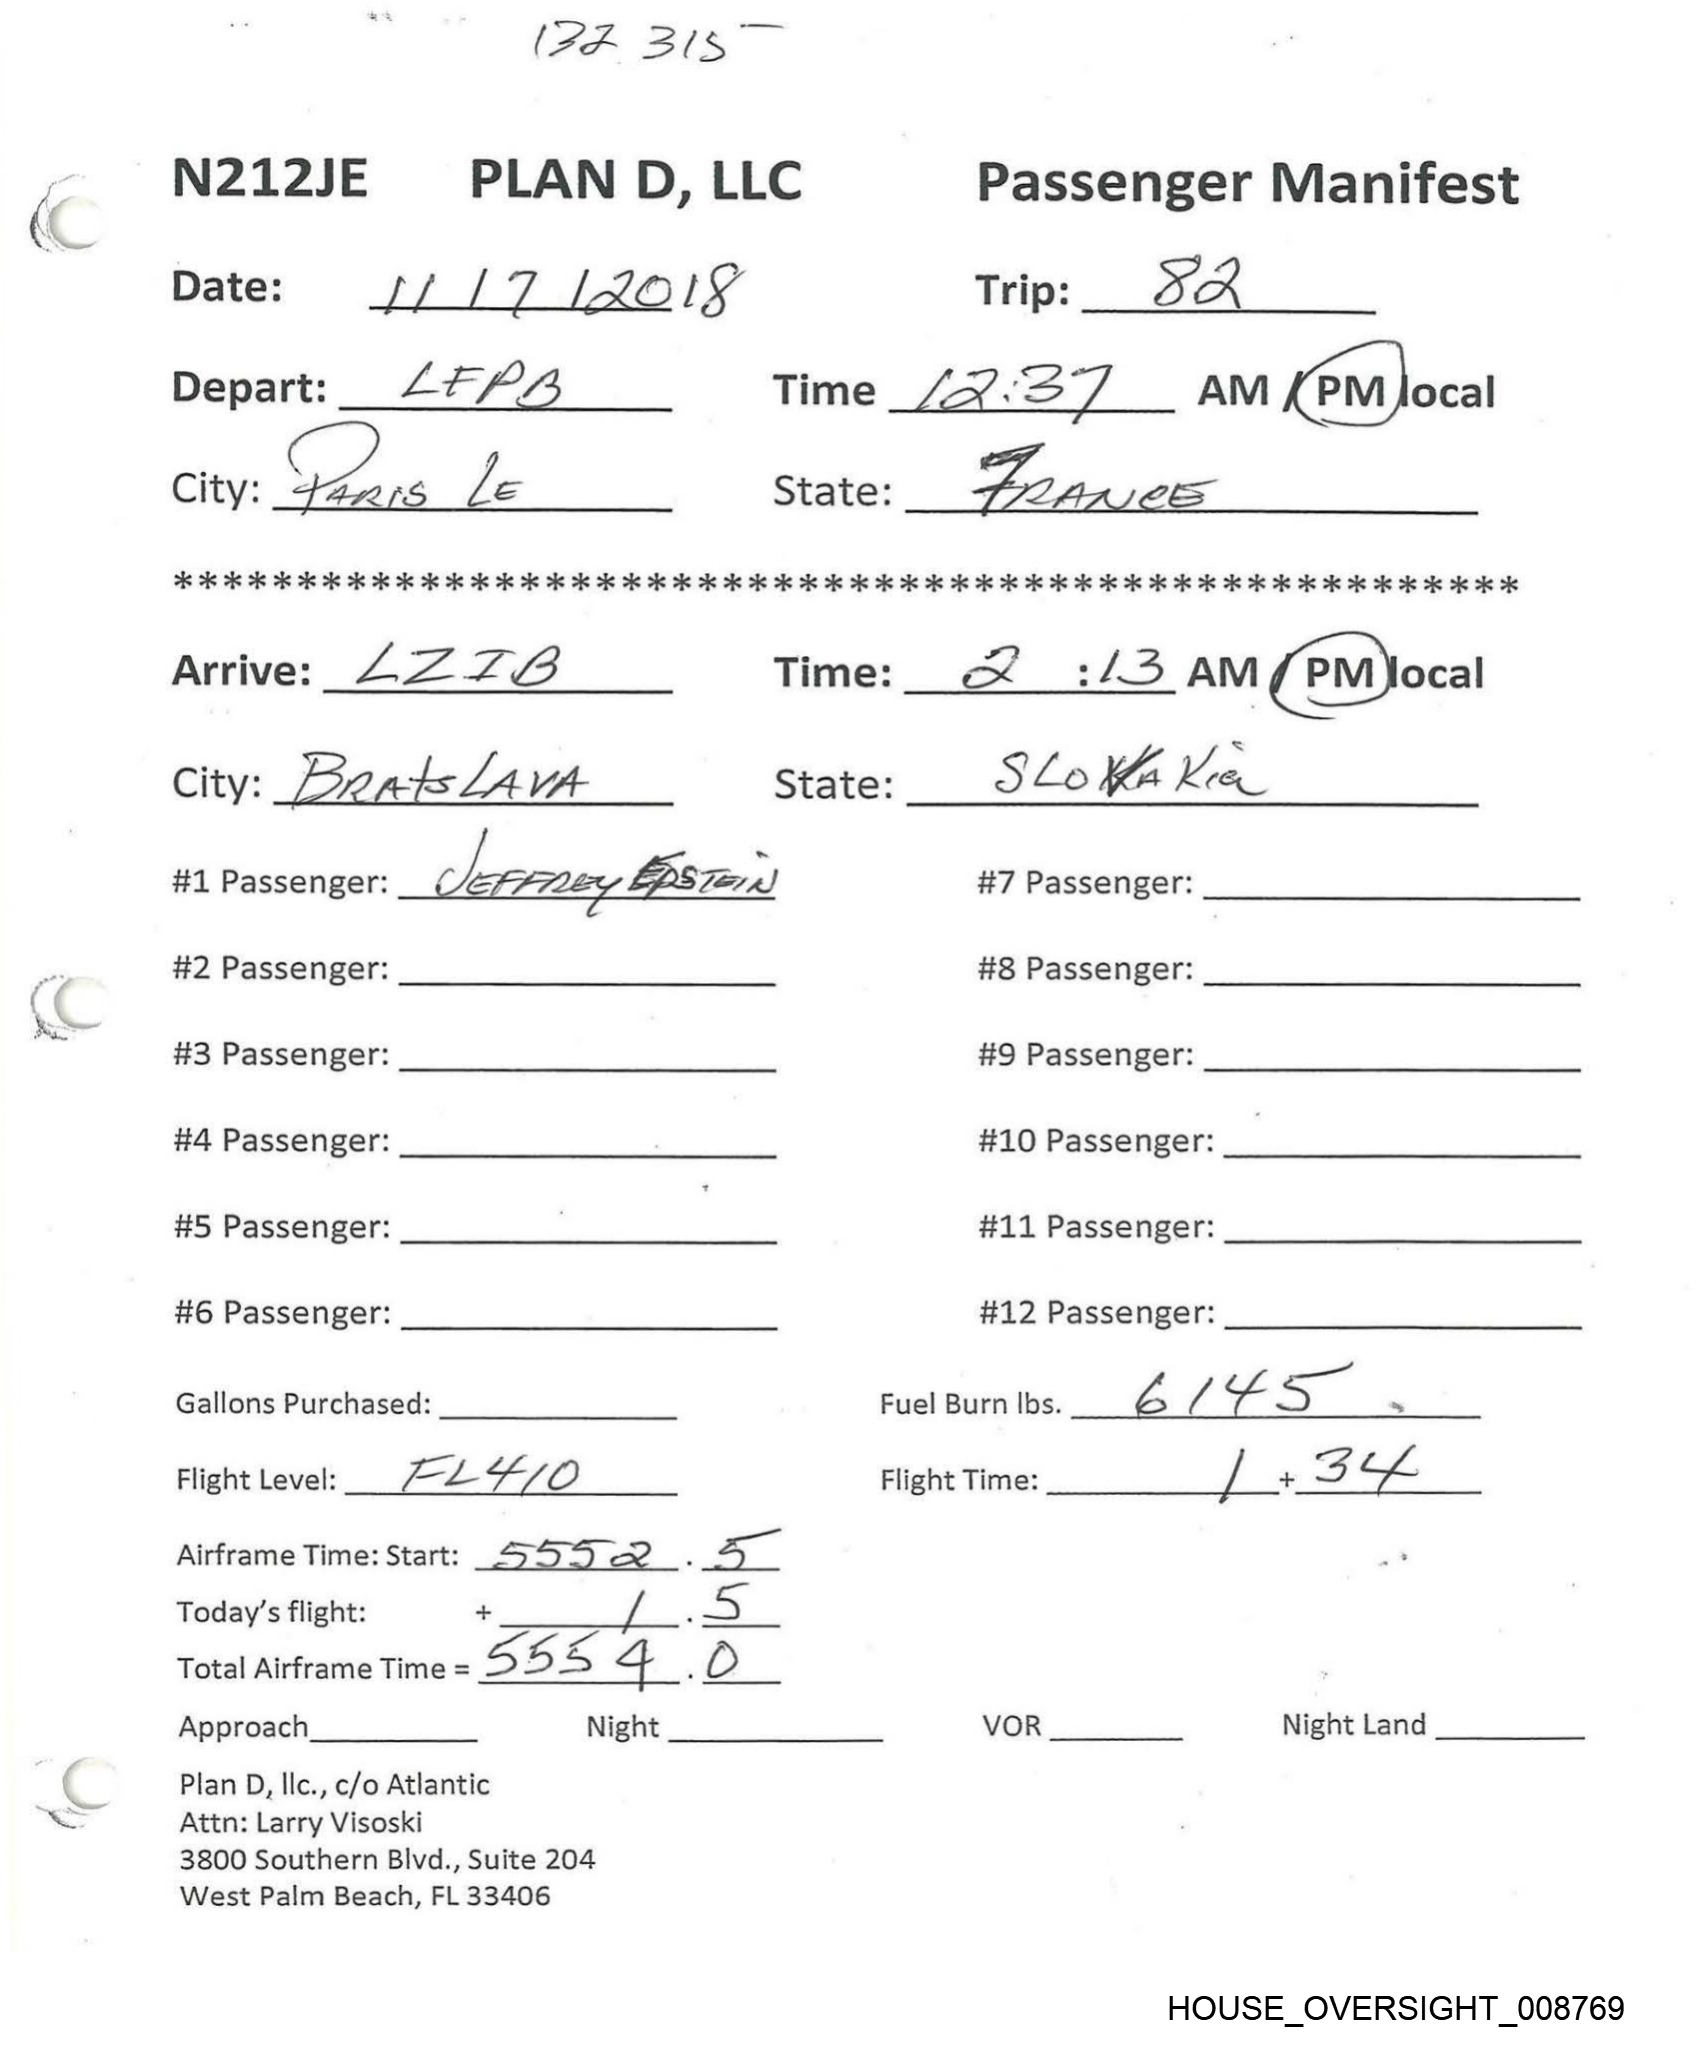 132 315
N212JE PLAN D, LLC Passenger Manifest
Date: 11 / 7 / 2018 Trip: 82
Depart: LFPB Time 12:37 AM / PM local
City: PARIS LE State: FRANCE
******************************************************
Arrive: LZIB Time: 2 :13 AM / PM local
City: BRAtSLAVA State: SLOVAKia
#1 Passenger: JEFFREY EPSTEiN #7 Passenger:
#2 Passenger: #8 Passenger:
#3 Passenger: #9 Passenger:
#4 Passenger: #10 Passenger:
#5 Passenger: #11 Passenger:
#6 Passenger: #12 Passenger:
Gallons Purchased: Fuel Burn lbs. 6145
Flight Level: FL410 Flight Time: 1 + 34
Airframe Time: Start: 5552 . 5
Today's flight: + 1 . 5
Total Airframe Time = 5554 . 0
Approach Night VOR Night Land
Plan D, llc., c/o Atlantic
Attn: Larry Visoski
3800 Southern Blvd., Suite 204
West Palm Beach, FL 33406
HOUSE_OVERSIGHT_008769